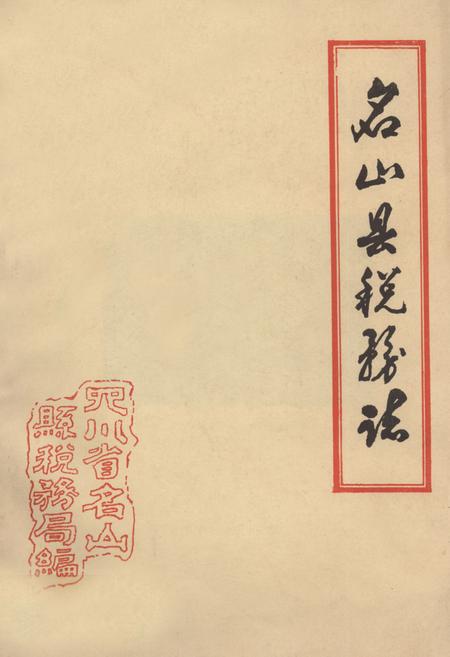 名山县税務誌
四川省名山
縣税務局編